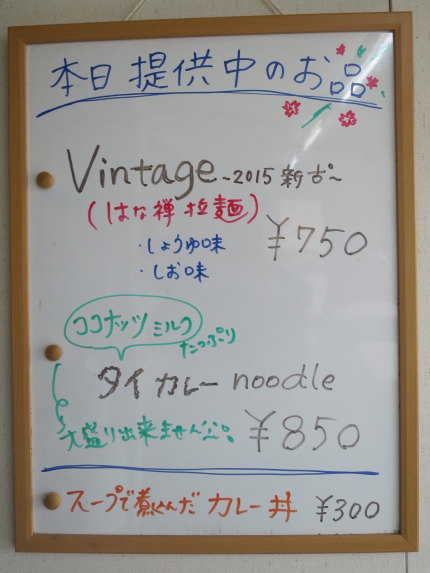 本日提供中のお品
Vintage ~2015 新古~
(はな禅拉麺)
・しょうゆ味
・しお味
¥750
ココナッツミルク
たっぷり
タイカレー noodle
大盛り出来ません
¥850
スープで煮込んだ カレー丼 ¥300